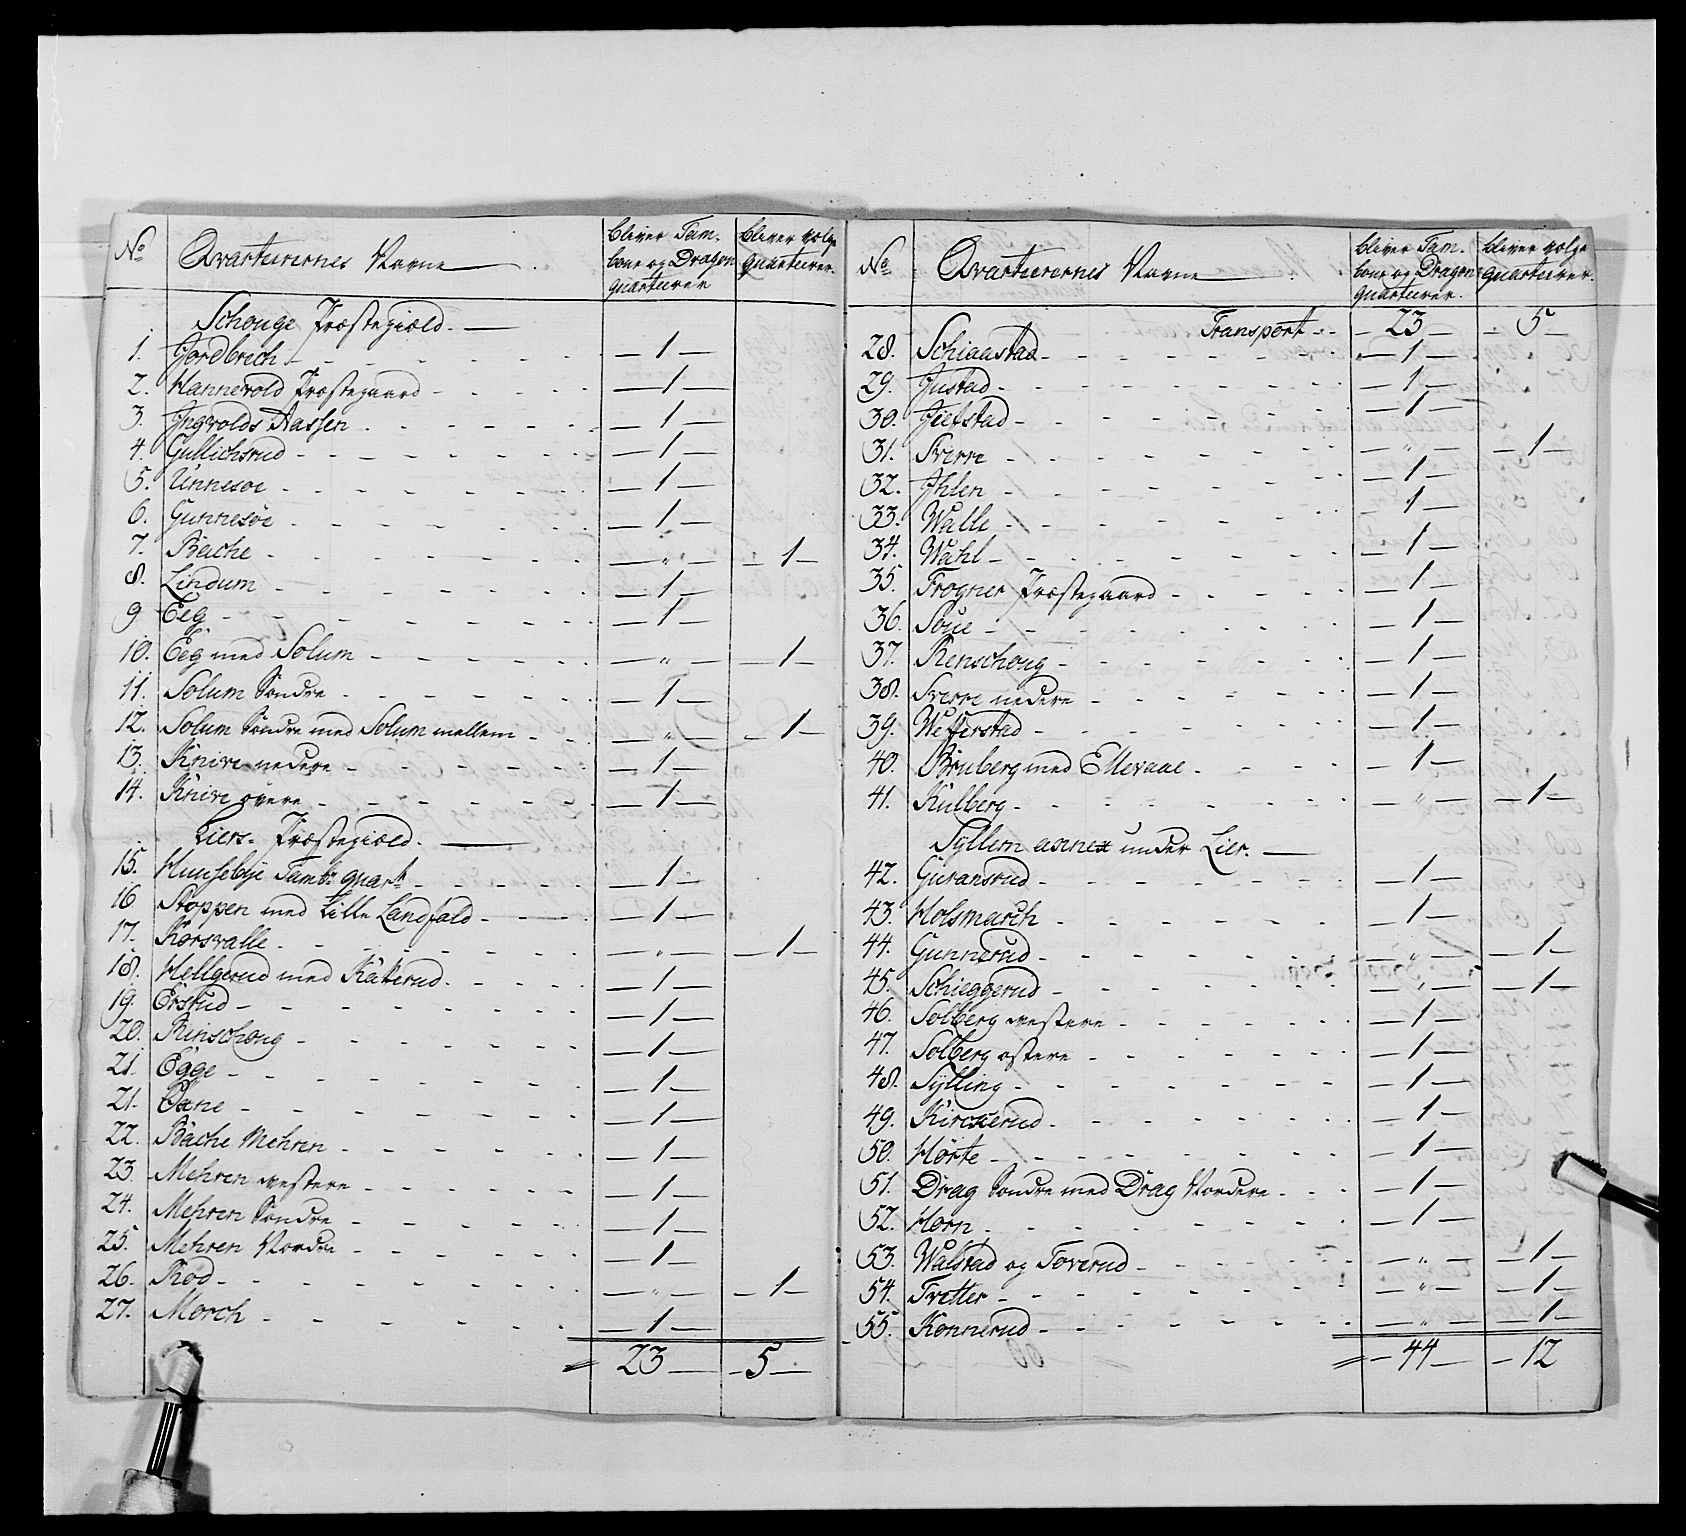 No Qvarteerernes Navne bliver Tambour og Dragon quarteerer bliver Følge quarteerer.
Schouge Præstegiæld.
1. Jordbrech - 1 -
2. Hannevold Præstegaard - 1 -
3. Jngvolds Aassen - 1 -
4. Gullichsrud - 1 -
5. Unnesøe - 1 -
6. Gunnesøe - 1 -
7. Bache - " - - 1 -
8. Lindum - 1 -
9 Eeg - 1 -
10. Eeg med Solum - " - - 1 -
11. Solum Søndre - 1 -
12. Solum Søndre med Solum mellem - " - - 1 -
13. Knive nedere - 1 -
14. Knive øvere - 1 -
Liers Præstegiæld.
15. Huusebye Tambr quartr - 1 -
16 Stoppen med Lille Landfald - 1 -
17. Korsvalle - " - - 1 -
18. Hellgerud med Käkerud - 1 -
19. Ersrud - 1 -
20. Rinschoug - 1 -
21. Egge - 1 -
21. Oxne - 1 -
22. Bache Mehren - 1 -
23. Mehren vestere - 1 -
24. Mehren Søndre - 1 -
25. Mehren Nordre - 1 -
26. Rød - " - - 1 -
27. Morch - 1 -
23 - 5 -
No Qvarteerernes Navne bliver Tambour og Dragon quarteerer. bliver Følge quarteerer.
Transport - 23 - - 5 -
28. Schiaastad - 1 -
29. Justad - 1 -
30. Jeefstad - 1 -
31. Sverre - " - - 1 -
32. Jhlen - 1 -
33. Walle - 1 -
34. Wahl - 1 -
35. Frogner Præstegaard - 1 -
36. Søue - 1 -
37. Renschoug - 1 -
38. Sverre nedere - 1 -
39. Wefferstad - 1 -
40. Bruberg med Ellevaae - 1 -
41. Kulberg - " - - 1 -
Syllern annex under Lier.
42. Guransrud - 1 -
43. Holsmarch - 1 -
44. Gunnerud - " - - 1 -
45. Schieggerud - " - - 1 -
46. Solberg vestere - 1 -
47. Solberg østere - 1 -
48. Sylling - 1 -
49. Kirckerud - 1 -
50. Hørte - 1 -
51. Drag Søndre med Drag Nordere - 1 -
52. Horn - 1 -
53. Walstad og Toverud - " - - 1 -
54. Tvetter - " - - 1 -
55. Konnerud - " - - 1 -
- 44 - - 12